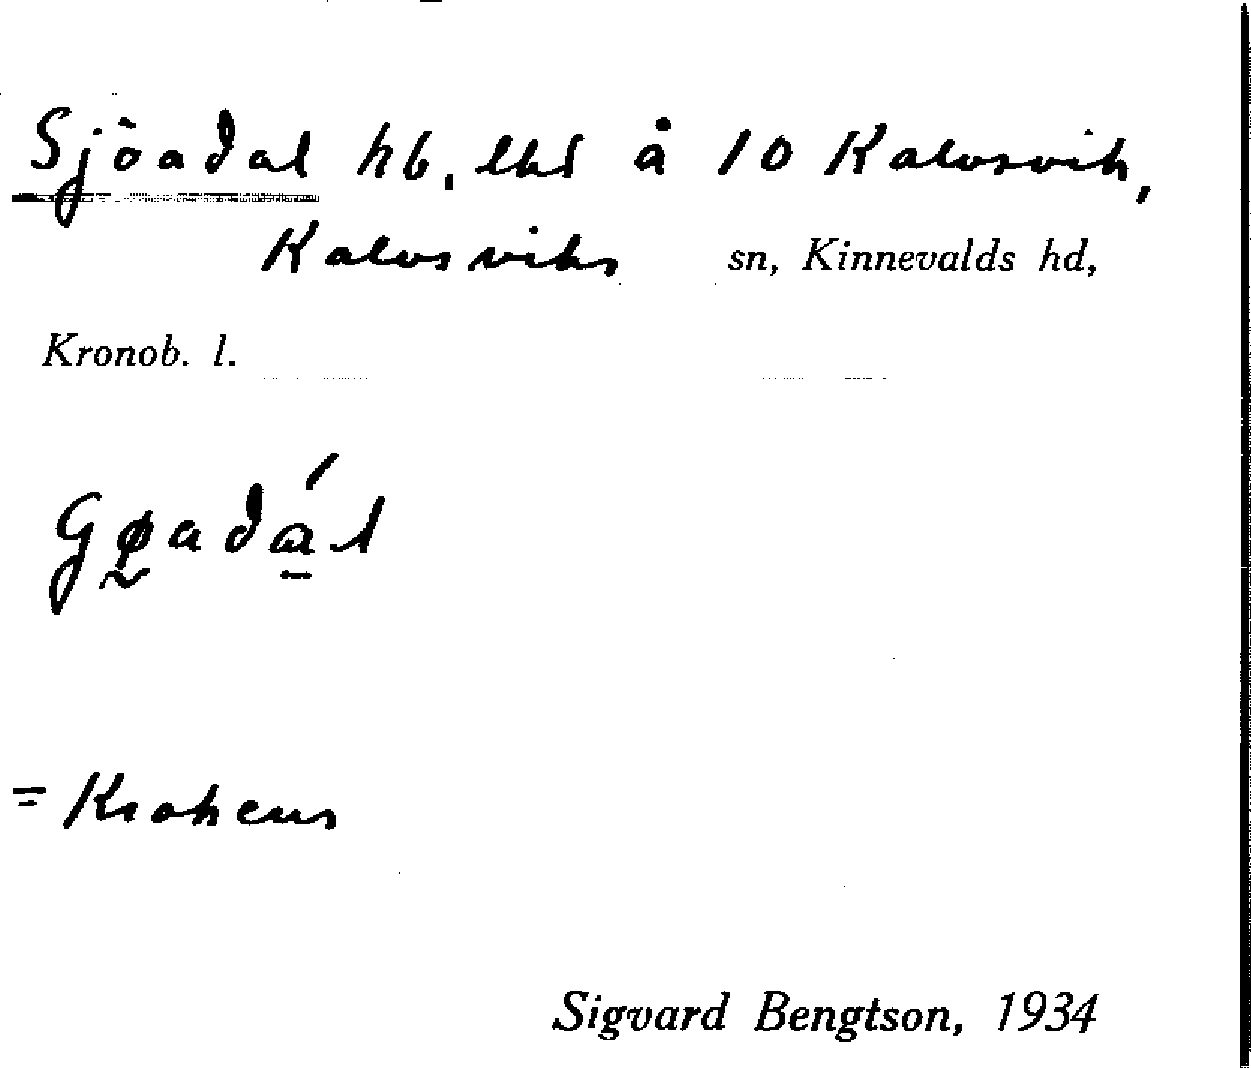 Sjöadal hb, lht å 10 Kalvsvik,
Kalvsviks sn, Kinnevalds hd,
Kronob. l.
Gøadál
= Krokens
Sigvard Bengtson, 1934